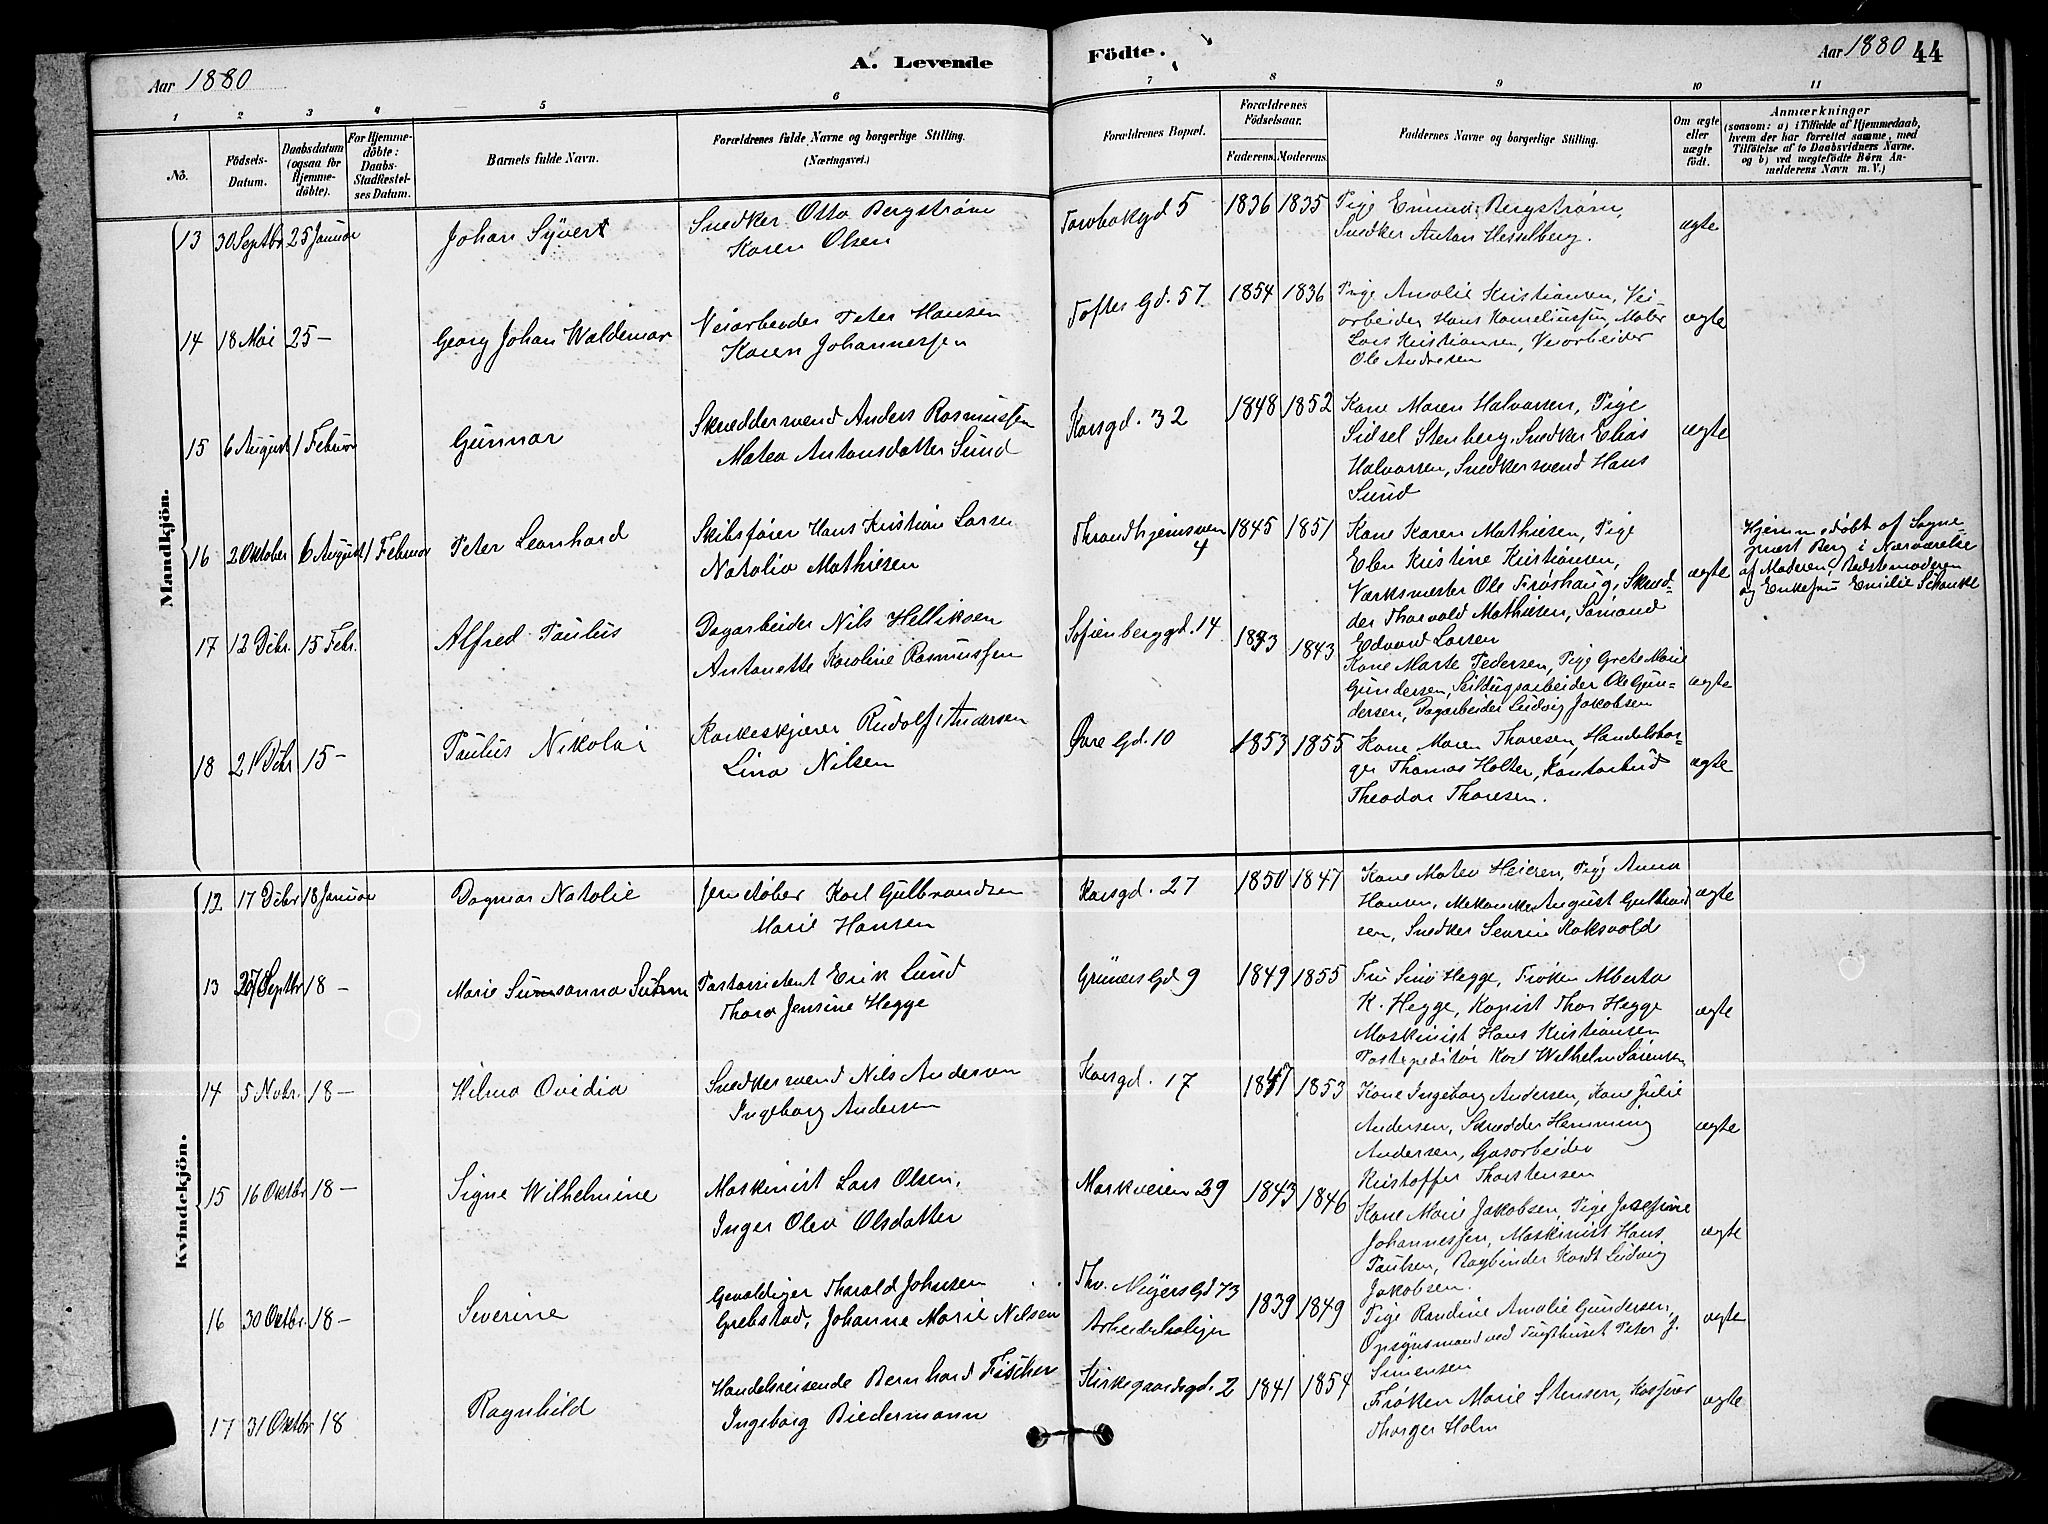 Aar 1880
A. Levende
Födte.
Aar 1880 44
1 2 3 4 5 6 7 8 9 10 11
Nô.
Födsels-
Datum.
Daabsdatum
(ogsaa for
Hjemme-
döbte).
For Hjemme-
döbte:
Daabs-
Stadfæstel-
ses Datum.
Barnets fulde Navn.
Forældrenes fulde Navne og borgerlige Stilling.
(Næringsvei.)
Forældrenes Bopæl.
Forældrenes
Födselsaar.
Faderens. Moderens.
Faddernes Navne og borgerlige Stilling.
Om ægte
eller
uægte
födt.
Anmærkninger
(saasom: a) i Tilfælde af Hjemmedaab,
hvem der har forrettet samme, med
Tilföielse af to Daabsvidners Navne.
og b) ved uægtefödte Börn An-
melderens Navn m. V.)
Mandkjön.
13 30 Septbr 25 Januar Johan Syvert
Snedker Otto Bergstrøm
Karen Olsen
Torvbakgd 5 1836 1835
Pige Emma Bergstrøm,
Snedker Anton Hesselberg.
ægte
14 18 Mai 25 — Georg Johan Waldemar
Veiarbeider Peter Hansen
Karen Johannessen
Toftes Gd. 57 1854 1836
Pige Amalie Kristiansen, Vei-
arbeider Hans Korneliussen, Maler
Lars Kristiansen, Veiarbeider
Ole Andresen
ægte
15 6 August 1 Februar Gunnar
Skreddersvend Anders Rasmussen
Matea Antonsdatter Sund
Korsgd. 32 1848 1852
Kone Maren Halvorsen, Pige
Sidsel Stenberg, Snedker Elias
Halvorsen, Snedkersvend Hans
Sund
ægte
16 2 Oktober 6 August 1 Februar Peter Leonhard
Skibsfører Hans Kristian Larsen
Natalia Mathiesen
Throndhjemsveien
4
1845 1851
Kone Karen Mathiesen, Pige
Elen Kristine Kristiansen,
Værksmester Ole Frøshaug, Skræd-
der Thorvald Mathiesen, Sømand
Edvard Larsen
ægte
Hjemmedøbt af Sogne-
præst Berg i Nærværelse
af Moderen, Bedstemoderen
og Enkefru Emilie Schanke
17 12 Dcbr. 15 Febr. Alfred Paulus
Dagarbeider Nils Helliksen
Antonette Karoline Rasmussen
Sofienberggd. 14 1843 1843
Kone Marte Pedersen, Pige Grete Marie
Gundersen, Seildugsarbeider Ole Gun-
dersen, Dagarbeider Ludvig Jakobsen
ægte
18 21 Dcbr 15 — Paulus Nikolai
Korkeskjærer Rudolf Andersen
Lina Nilsen
Øvre Gd. 10 1853 1855
Kone Maren Thoresen, Handelsbor-
ger Thomas Holter, Kontorbud
Theodor Thoresen.
ægte
Kvindekjön.
12 17 Dcbr 18 Januar Dagmar Natalie
Jernstøber Karl Gulbrandsen
Marie Hansen
Korsgd. 27 1850 1847
Kone Matea Heieren, Pige Anna
Hansen, Mekaniker August Gulbrand
sen, Snedker Severin Koksvold
ægte
13 27 Septbr 18 — Marie Susanna Suhm
Postassistent Erik Lund
Thora Jensine Hegge
Grüners Gd 9 1849 1855
Fru Sina Hegge, Frøken Alberta
K. Hegge, Kopist Thor Hegge
Maskinist Hans Kristiansen
Postexpeditør Karl Wilhelm Sørensen
ægte
14 5 Nvbr. 18 — Hilma Ovidia
Snedkersvend Nils Andersen
Ingeborg Andersen
Korsgd. 17 1847 1853
Kone Ingeborg Andersen, Kone Julie
Andersen, Skrædder Hemming
Andersen, Gasarbeider
Kristoffer Thorstensen
ægte
15 16 Oktbr 18 — Signe Wilhelmine
Maskinist Lars Olsen,
Inger Olea Olsdatter
Markveien 29 1843 1846
Kone Marie Jakobsen, Pige Josefine
Johannessen, Maskinist Hans
Paulsen, Bogbinder Kordt Ludvig
Jakobsen.
ægte
16 30 Oktbr. 18 — Severine
Gevaldiger Tharald Johnsen
Grebstad, Johanne Marie Nilsen
Thv. Meyers Gd 73
Arbeiderboliger
1839 1849
Pige Randine Amalie Gundersen,
Opsynsmand ved Tugthuset Peter J.
Simensen
ægte
17 31 Oktbr 18 Ragnhild
Handelsreisende Bernhard Fischer
Ingeborg Biedermann
Kirkegaardsgd. 2 1841 1854
Frøken Marie Stensen, Kasserer
Thorger Holm
ægte